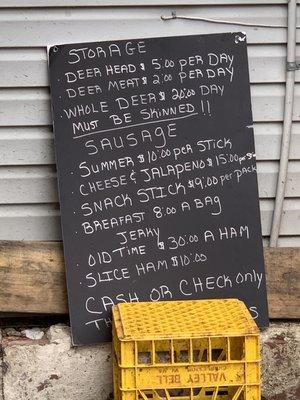 STORAGE
. DEER HEAD $ 5.00 PER DAY
. DEER MEAT $ 2.00 PER DAY
. WHOLE DEER $ 20.00 DAY
MUST BE SKINNED !!
SAUSAGE
. SUMMER $10.00 PER STICK
. CHEESE & JALAPENO $15.00
. SNACK STICK $9.00 PER PACK
. BREAKFAST 8.00 A BAG
JERKY
OLD TIME $30.00 A HAM
. SLICE HAM $10.00
CASH OR CHECK ONLY
VALLEY BELL